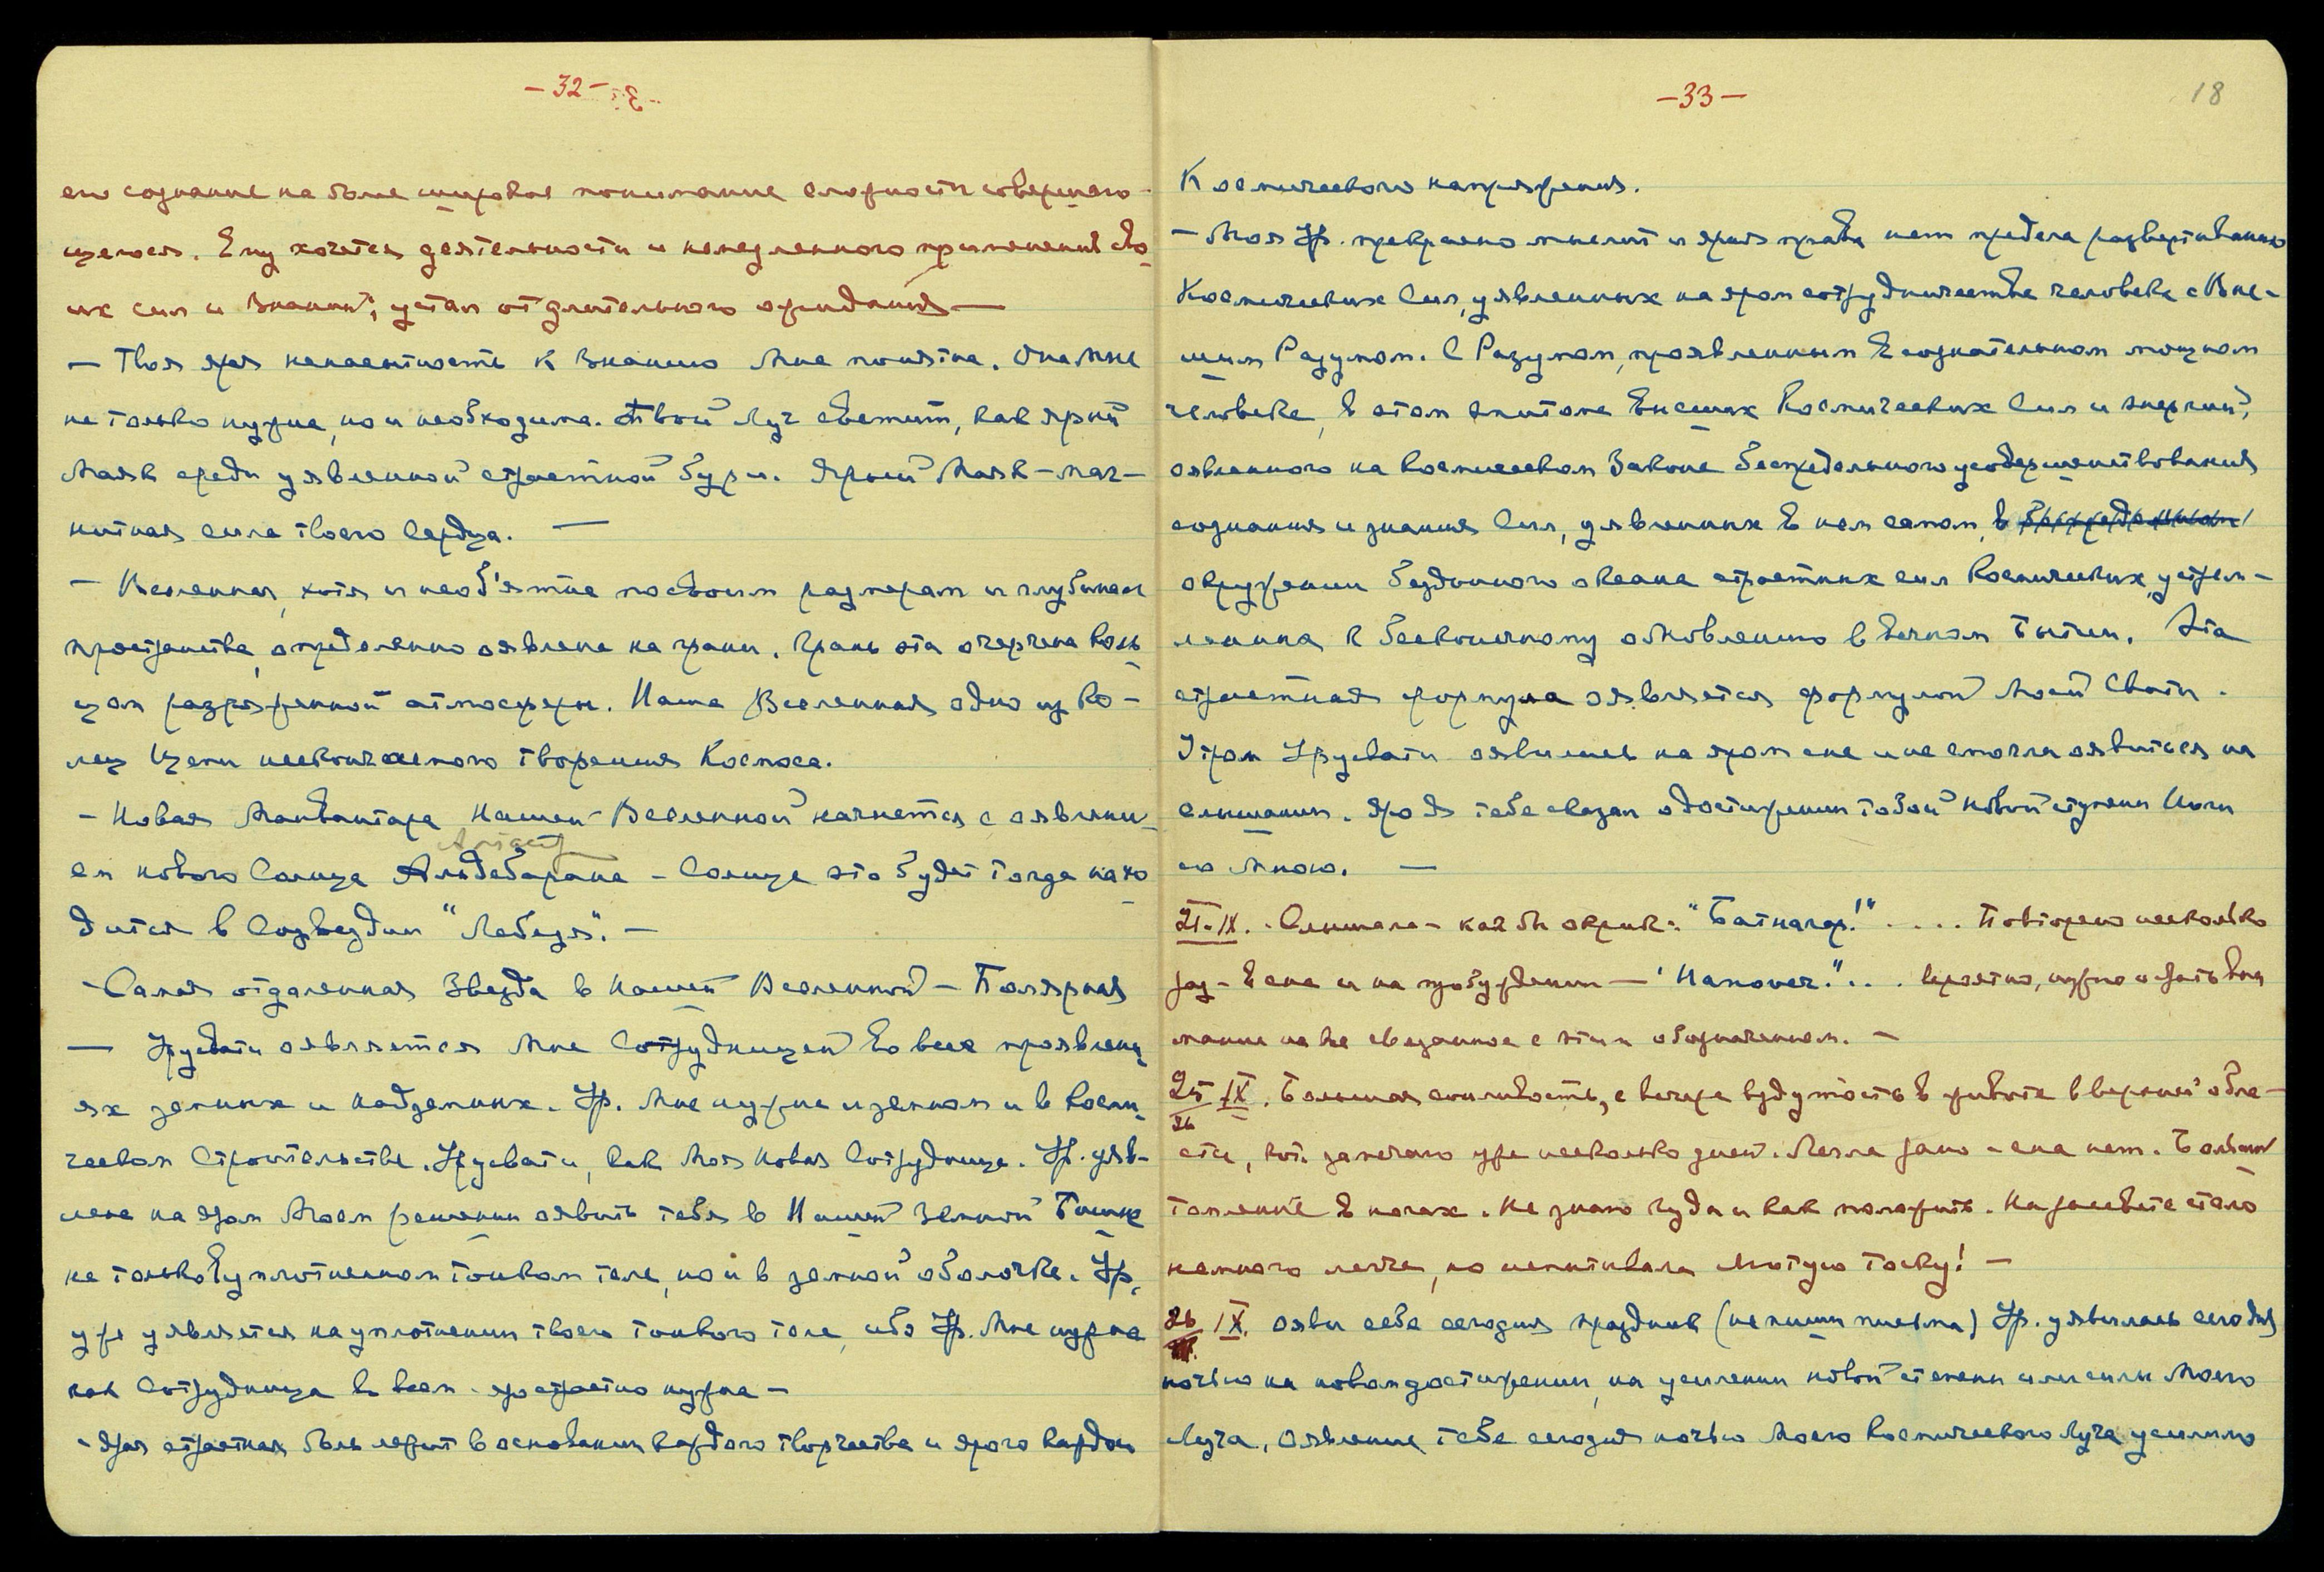 -32-
его сознание на более широкое понимание сложности соверша-
щегося. Ему хочется деятельности и немедленного применения сво
их сил и знаний; устал от длительного ожидания —
— Твоя ярая ненасытность к Знанию Мне понятна. Она Мне
не только нужна, но и необходима. Твой Луч светит, как яркий
Маяк среди уявленной страстной бури. Ярый Маяк – маг-
нитная сила твоего Сердца. —
— Вселенная, хотя и необ'ятна по своим размерам и глубинам
пространства, определенно оявлена на грани. Грань эта очерчена коль
цом разряженной атмосферы. Наша Вселенная одно из ко-
лец Цепи нескончаемого творения Космоса.
- Новая Манвантара Нашей Вселенной начнется с оявлени
ем нового Солнца Альдебарана – Солнце это будет тогда нахо
дится в Созвездии "Лебедя". –
- Самая отдаленная Звезда в Нашей Вселенной – Полярная
— Урусвати оявляется Мне Сотрудницей во всех проявлени
ях земных и надземных. Ур. Мне нужна и земном и в косми
ческом Строительстве. Урусвати, как Моя Новая Сотрудница. Ур. уяв-
лена на яром Моем решении оявить тебя в Нашей Земной Башне
не только в уплотненном тонком теле, но и в земной оболочке. Ур.
уже уявляется на уплотнении твоего тонкого тела, ибо Ур. Мне нужна
как Сотрудница во всем - яро страстно нужна –
- Ярая страстная боль лежит в основании каждого творчества и ярого каждого
-33-
18
Космического напряжения.
– Моя Ур. прекрасно мыслит и ярая права нет предела развертыванию
Космических Сил, уявленных на яром сотрудничестве человека с Выс-
шим Разумом. С Разумом, проявленным в сознательном мощном
человеке, в этом эпитоме Высших Космических Сил и энергий,
оявленного на космическом Законе беспредельного усовершенствования
сознания и знания Сил, уявленных в нем самом, в
окружении бездонного океана страстных сил Космических, устрем-
ленных к бесконечному обновлению в Вечном Бытии. Эта
страстная формула оявляется формулой Моей Свати.
Утром Урусвати оявилась на яром сне и не смогла оявиться на
слышании. Яро Я тебе сказал о достижении тобой новой ступени Йоги
со Мною. —
21.IX. - Слышала – как бы окрик: "Батналар!" .... Повторено несколько
раз – в сне и на пробуждении — "Hanover." ... вероятно, нужно обратить вни
мание на все связанное с этим обозначением. –
25 IX. Большая сонливость, с вечера вздутость в животе в верхней обла-
26
сти, кот. замечаю уже несколько дней. Легла рано – сна нет. Большое
томление в ногах. Не знаю куда и как положить. На рассвете стало
немного легче, но испытывала лютую тоску! –
26 IX. Ояви себе сегодня праздник (не пиши письма) Ур. уявилась сегодня
ночью на новом достижении, на усилении новой степени или силы Моего
Луча. Оявление тебе сегодня ночью Моего Космического Луча усилило